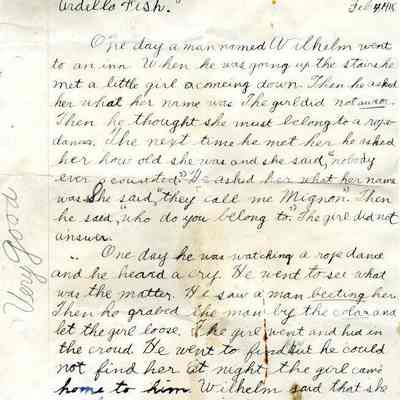 Ardello Fish."
One day a man named Wilhelm went
to an inn. When he was going up the stairs he
met a little girl a comeing down. Then he asked
her what her name was The girl did not
Then he thought she must belong to a rope
dancer. The next time he met her he asked
her how old she was and she said, "nobody
ever counted." He asked her what her name
was She said, "they call me Mignon". Then
he said, who do you belong to." The girl did not
answer.
Very Good
One day he was watching a rope dance
and he heard a cry. He went to see what
was the matter. He saw a man beeting her
Then he grabed the man by the colar and
let the girl loose. The girl went and hid in
the croud He went to find but he could
not find her at night the girl came
home to him. Wilhelm said that she